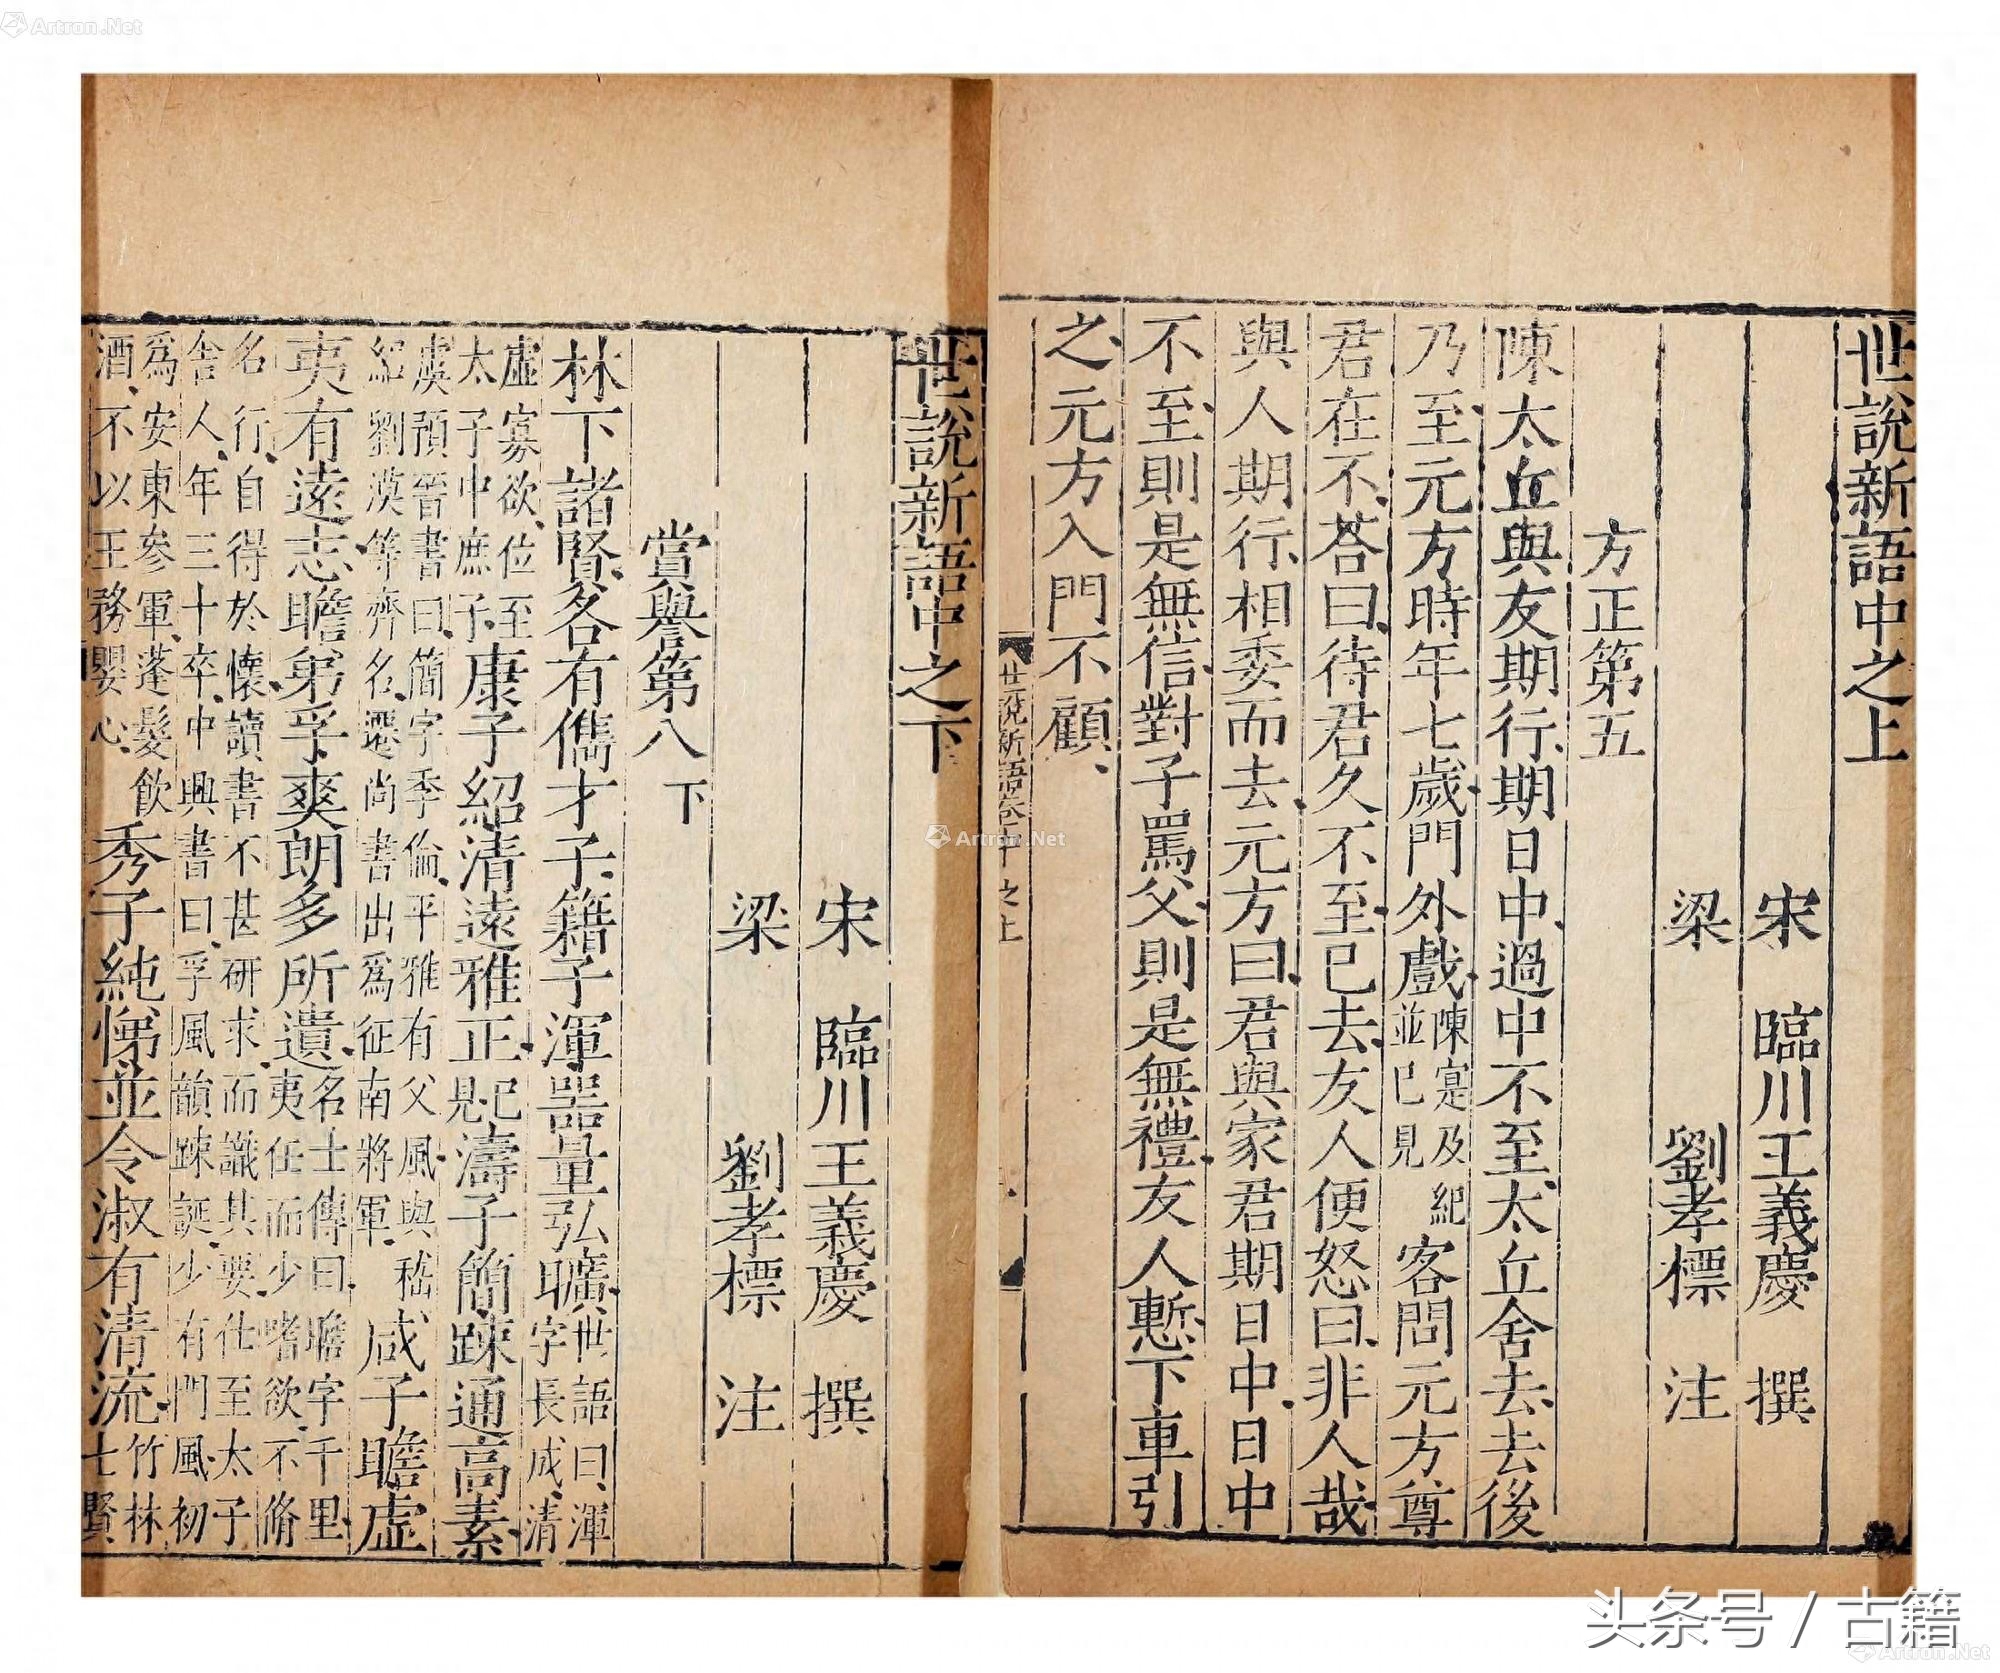 世說新語中之上
宋 臨川王義慶 撰
梁 劉孝標 注
方正第五
陳太丘與友期行、期日中、過中不至、太丘舍去、去後
乃至、元方時年七歲、門外戲、陳寔及紀並已見 客問元方尊
君在不、荅曰、待君久不至、已去、友人便怒曰、非人哉、
與人期行、相委而去、元方曰、君與家君期日中、日中
不至、則是無信、對子罵父、則是無禮、友人慙、下車引
之、元方入門不顧、
世說新語卷中之上
世說新語中之下
宋 臨川王義慶 撰
梁 劉孝標 注
賞譽第八 下
林下諸賢、各有儁才子、籍子渾、器量弘曠、世語曰、渾字長成、清
虛寡欲、位至太子中庶子、康子紹、清遠雅正、已見、濤子簡、踈通高素、
虞預晉書曰、簡字季倫、平雅有父風、與嵇紹劉漠等齊名、遷尚書、出爲征南將軍、咸子瞻、虛
夷有遠志、瞻弟孚、爽朗多所遺、名士傳曰、瞻字千里、夷任而少嗜欲、不脩
名行、自得於懷、讀書不甚研求、而識其要、仕至太子舍人、年三十卒、中興書曰、孚風韻踈誕、少有門風、初
爲安東參軍、蓬髮飲酒、不以王務嬰心、秀子純悌、並令淑有清流、竹林七賢
Artron.Net
Artron.Net
头条号 / 古籍
Artron.Net